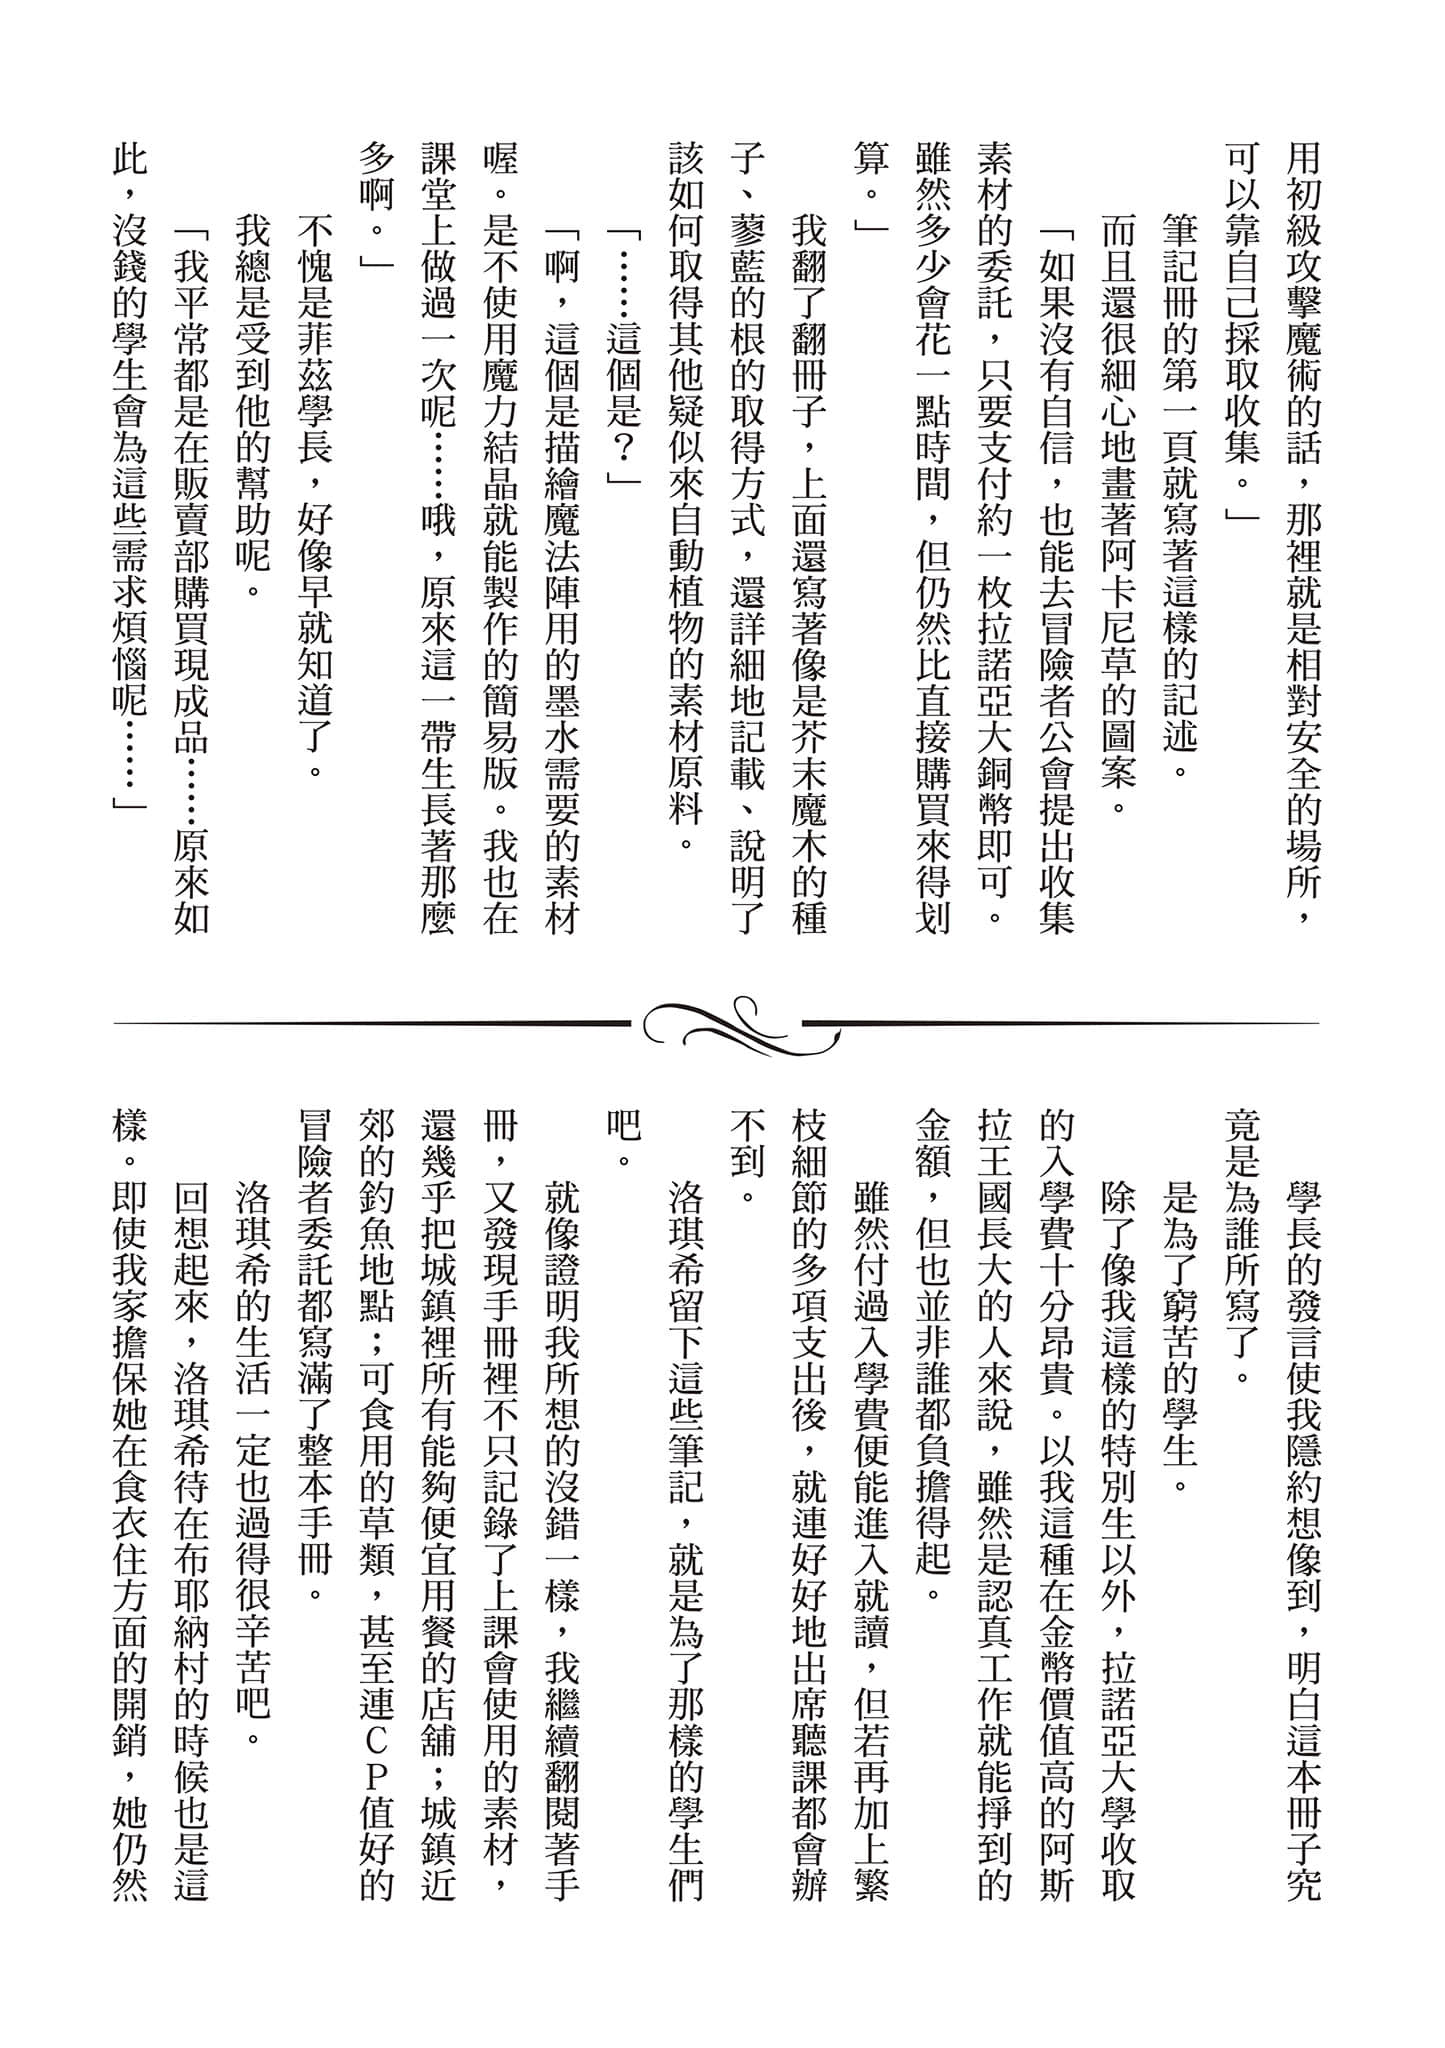 用初級攻擊魔術的話，那裡就是相對安全的場所，
可以靠自己採取收集。」
筆記冊的第一頁就寫著這樣的記述。
而且還很細心地畫著阿卡尼草的圖案。
「如果沒有自信，也能去冒險者公會提出收集
素材的委託，只要支付約一枚拉諾亞大銅幣即可。
雖然多少會花一點時間，但仍然比直接購買來得划
算。」
我翻了翻冊子，上面還寫著像是芥末魔木的種
子、蓼藍的根的取得方式，還詳細地記載、說明了
該如何取得其他疑似來自動植物的素材原料。
「……這個是？」
「啊，這個是描繪魔法陣用的墨水需要的素材
喔。是不使用魔力結晶就能製作的簡易版。我也在
課堂上做過一次呢……哦，原來這一帶生長著那麼
多啊。」
不愧是菲茲學長，好像早就知道了。
我總是受到他的幫助呢。
「我平常都是在販賣部購買現成品……原來如
此，沒錢的學生會為這些需求煩惱呢……」
學長的發言使我隱約想像到，明白這本冊子究
竟是為誰所寫了。
是為了窮苦的學生。
除了像我這樣的特別生以外，拉諾亞大學收取
的入學費十分昂貴。以我這種在金幣價值高的阿斯
拉王國長大的人來說，雖然是認真工作就能掙到的
金額，但也並非誰都負擔得起。
雖然付過入學費便能進入就讀，但若再加上繁
枝細節的多項支出後，就連好好地出席聽課都會辦
不到。
洛琪希留下這些筆記，就是為了那樣的學生們
吧。
就像證明我所想的沒錯一樣，我繼續翻閱著手
冊，又發現手冊裡不只記錄了上課會使用的素材，
還幾乎把城鎮裡所有能夠便宜用餐的店舖；城鎮近
郊的釣魚地點；可食用的草類，甚至連ＣＰ值好的
冒險者委託都寫滿了整本手冊。
洛琪希的生活一定也過得很辛苦吧。
回想起來，洛琪希待在布耶納村的時候也是這
樣。即使我家擔保她在食衣住方面的開銷，她仍然